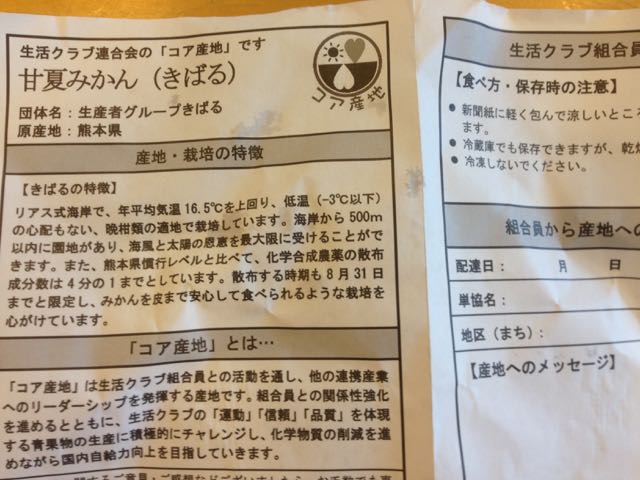 生活クラブ連合会の「コア産地」です
甘夏みかん（きばる）
団体名：生産者グループきばる
原産地：熊本県
コア産地
産地・栽培の特徴
【きばるの特徴】
リアス式海岸で、年平均気温16.5℃を上回り、低温（-3℃以下）
の心配もない、晩柑類の適地で栽培しています。海岸から500m
以内に園地があり、海風と太陽の恩恵を最大限に受けることがで
きます。また、熊本県慣行レベルと比べて、化学合成農薬の散布
成分数は4分の1までとしています。散布する時期も8月31日
までと限定し、みかんを皮まで安心して食べられるような栽培を
心がけています。
「コア産地」とは…
「コア産地」は生活クラブ組合員との活動を通し、他の連携産業
へのリーダーシップを発揮する産地です。組合員との関係性強化
を進めるとともに、生活クラブの「運動」「信頼」「品質」を体現
する青果物の生産に積極的にチャレンジし、化学物質の削減を進
めながら国内自給力向上を目指していきます。
生活クラブ組合員
【食べ方・保存時の注意】
● 新聞紙に軽く包んで涼しいところ
ます。
● 冷蔵庫でも保存できますが、乾燥
● 冷凍しないでください。
組合員から産地への
配達日： 月 日
単協名：
地区（まち）：
【産地へのメッセージ】